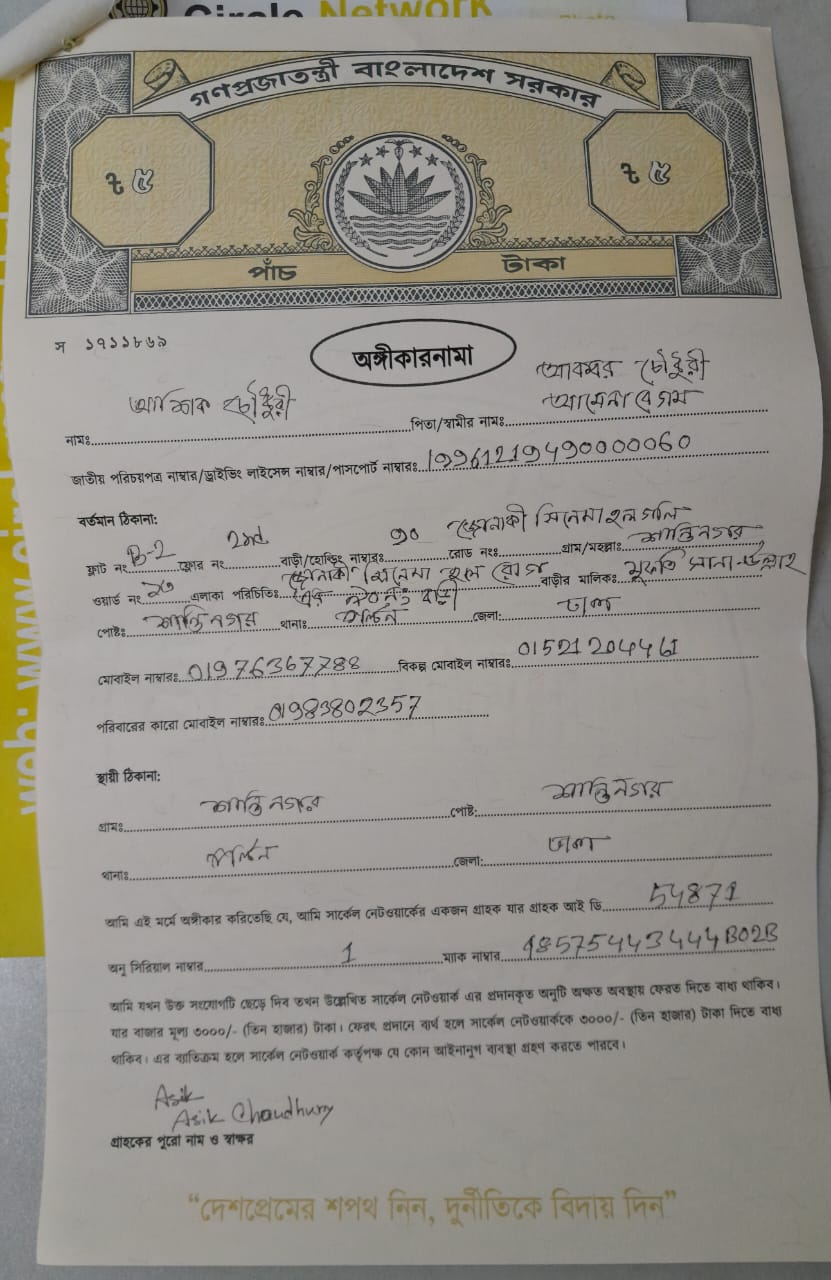 Circle Network
গণপ্রজাতন্ত্রী বাংলাদেশ সরকার
৳ ৫
৳ ৫
পাঁচ টাকা
স ১৭১১৮৬৯
অঙ্গীকারনামা
আকবর চৌধুরী
আশিক চৌধুরী আমেনা বেগম
নামঃ পিতা/স্বামীর নামঃ
জাতীয় পরিচয়পত্র নাম্বার/ড্রাইভিং লাইসেন্স নাম্বার/পাসপোর্ট নাম্বারঃ 19961219490000060
বর্তমান ঠিকানা:
জোনাকী সিনেমা হল গলি
ফ্লাট নং B-2 ফ্লোর নং 2nd বাড়ী/হোল্ডিং নাম্বারঃ ৯০ রোড নংঃ গ্রাম/মহল্লাঃ শান্তিনগর
ওয়ার্ড নং এলাকা পরিচিতিঃ জোনাকী সিনেমা হল রোড বাড়ীর মালিকঃ মুফতি সানাউল্লাহ
৯০ নং বাড়ী
পোষ্টঃ শান্তিনগর থানাঃ পল্টন জেলা: ঢাকা
মোবাইল নাম্বারঃ 01976367788 বিকল্প মোবাইল নাম্বারঃ 01521204461
পরিবারের কারো মোবাইল নাম্বারঃ 01983802357
স্থায়ী ঠিকানা:
গ্রামঃ শান্তিনগর পোষ্ট: শান্তিনগর
থানাঃ পল্টন জেলা: ঢাকা
আমি এই মর্মে অঙ্গীকার করিতেছি যে, আমি সার্কেল নেটওয়ার্কের একজন গ্রাহক যার গ্রাহক আই ডি 54871
অনু সিরিয়াল নাম্বার 1 ম্যাক নাম্বার 485754434444B02B
আমি যখন উক্ত সংযোগটি ছেড়ে দিব তখন উল্লেখিত সার্কেল নেটওয়ার্ক এর প্রদানকৃত অনুটি অক্ষত অবস্থায় ফেরত দিতে বাধ্য থাকিব।
যার বাজার মূল্য ৩০০০/- (তিন হাজার) টাকা। ফেরৎ প্রদানে ব্যর্থ হলে সার্কেল নেটওয়ার্ককে ৩০০০/- (তিন হাজার) টাকা দিতে বাধ্য
থাকিব। এর ব্যতিক্রম হলে সার্কেল নেটওয়ার্ক কর্তৃপক্ষ যে কোন আইনানুগ ব্যবস্থা গ্রহণ করতে পারবে।
Asik
Asik Chaudhury
গ্রাহকের পুরো নাম ও স্বাক্ষর
“দেশপ্রেমের শপথ নিন, দুর্নীতিকে বিদায় দিন”